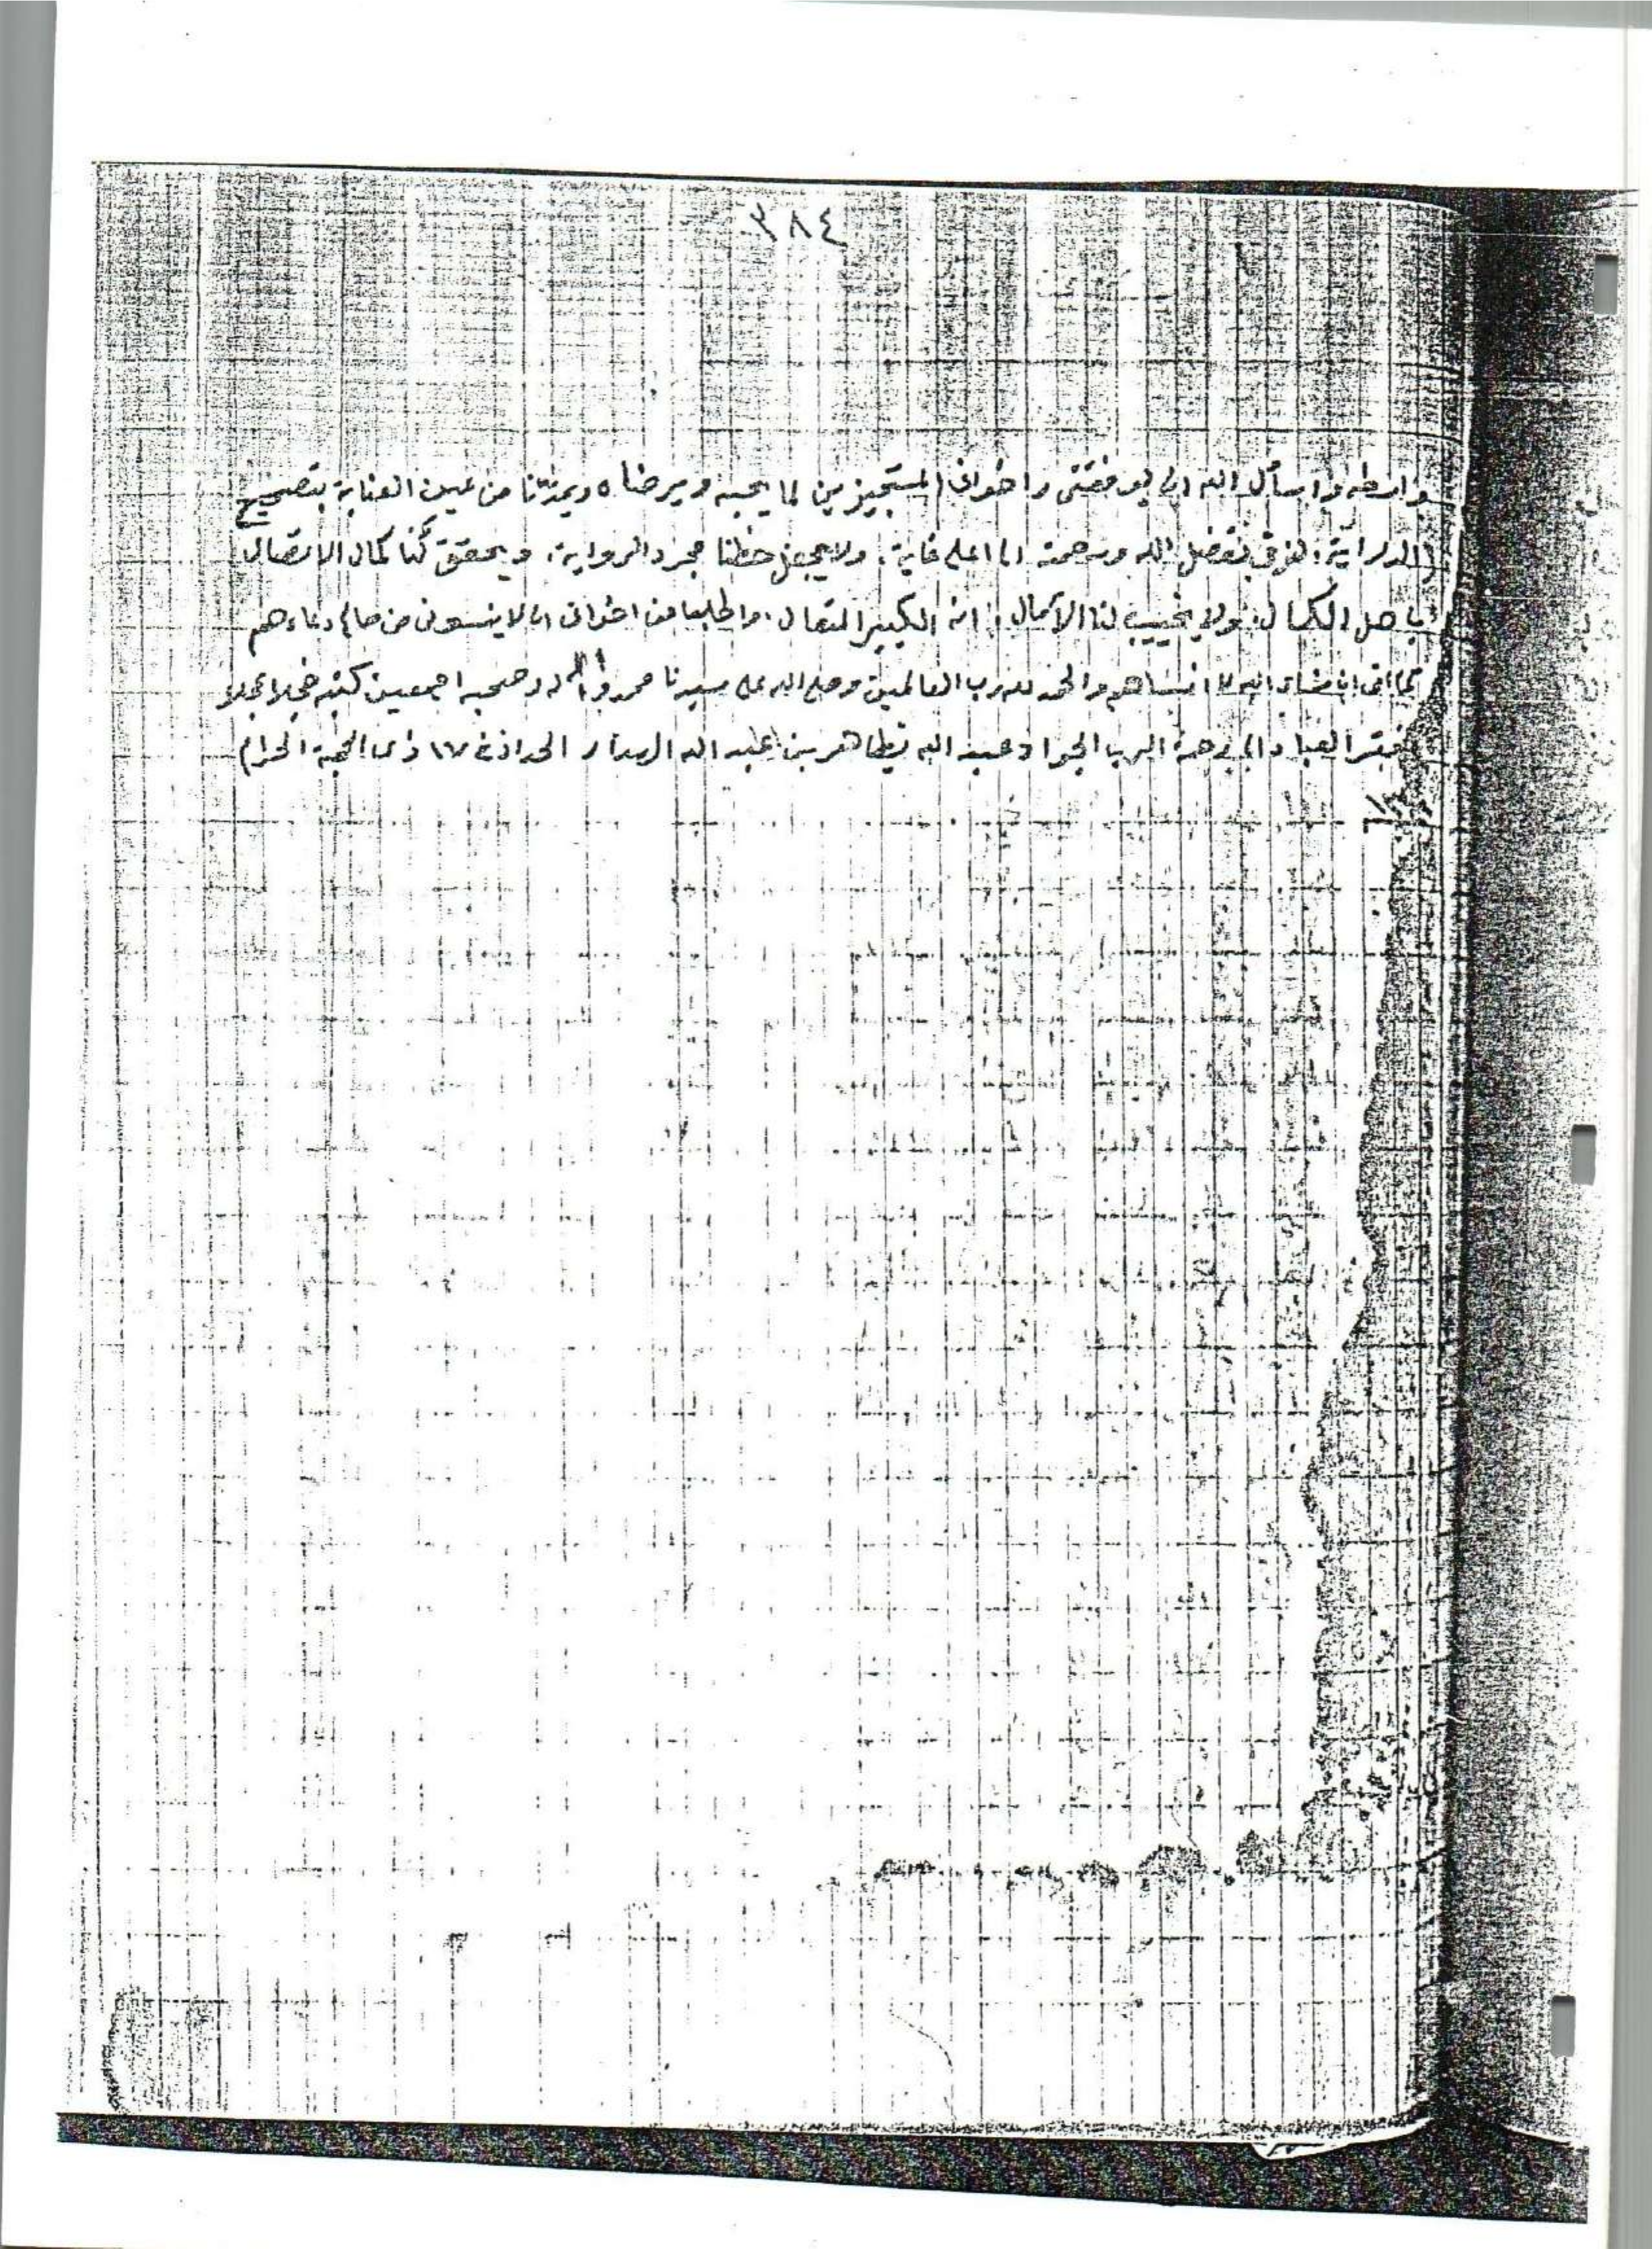 ٣٨٤
واسأل الله ان يوفقنى واخوانى المستجيزين لما يحبه ويرضاه ويمدّنا من عين العناية بتصحيح
الدراية لنرقى بفضل الله ورحمته الى اعلى غاية ولا يجعل حظنا مجرد الرواية ويحقق لنا كمال الاتصال
باهل الكمال ولا يخيب لنا الآمال انه الكبير المتعال واطلب من اخوانى ان لا ينسونى من صالح دعاءهم
كما انى ان شاء الله لا انساهم والحمد لله رب العالمين وصلى الله على سيدنا محمد واله وصحبه اجمعين كتبه خجلا عجلا
العباد الى رحمة الرب الجواد عبد الله بن طاهر بن عبد الله الهدار الحداد فى ١٧ ذى الحجة الحرام